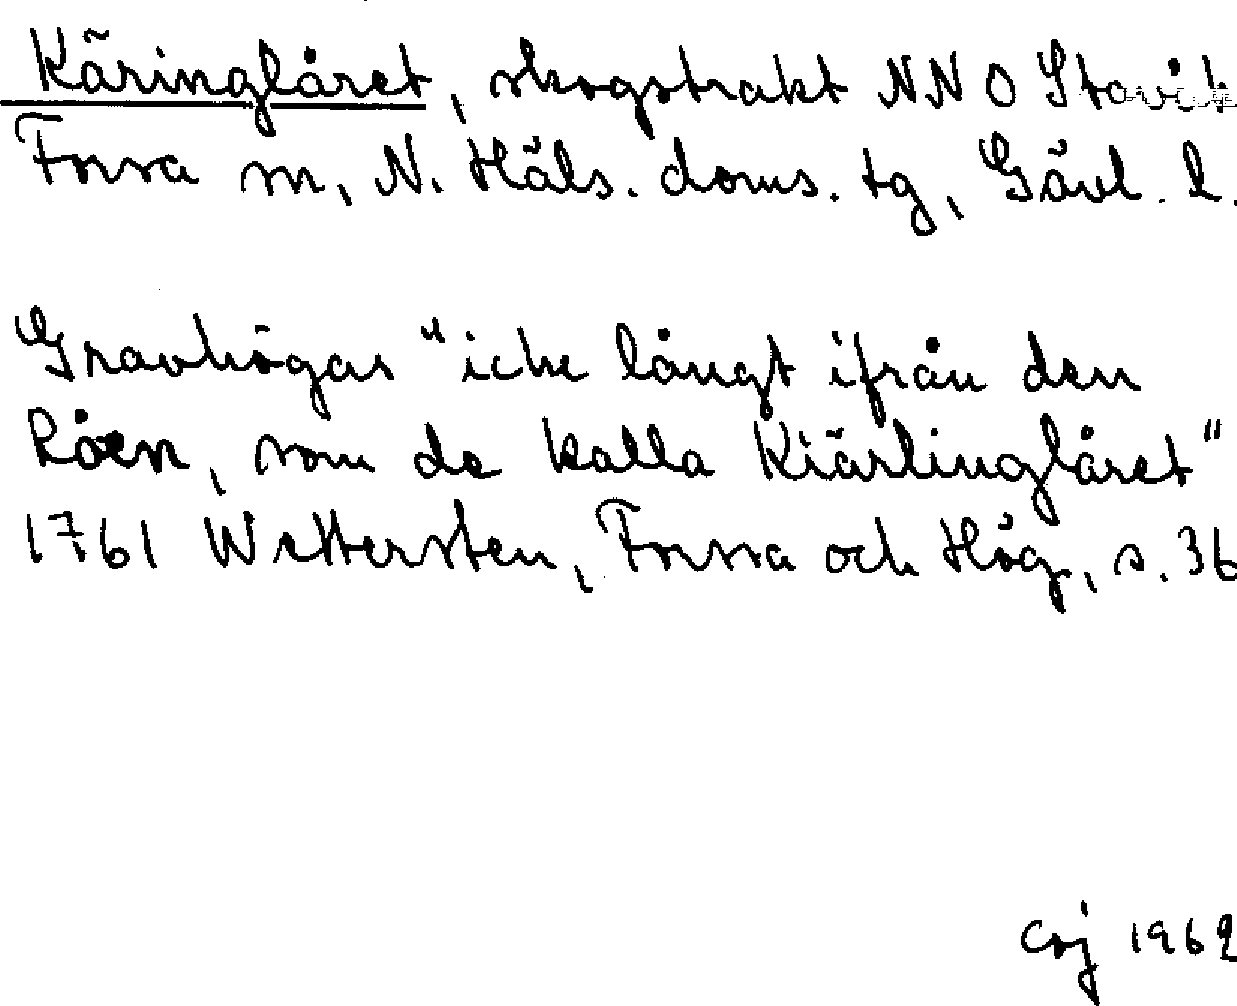 Käringlåret, skogstrakt NNO Stavik
Forsa sn, N. Häls. doms. tg, Gävl. l.
Gravhögar "icke långt ifrån den
Råen, som de kalla Kiärlinglåret"
1761 Wettersten, Forsa och Hög, s. 36
coj 1962